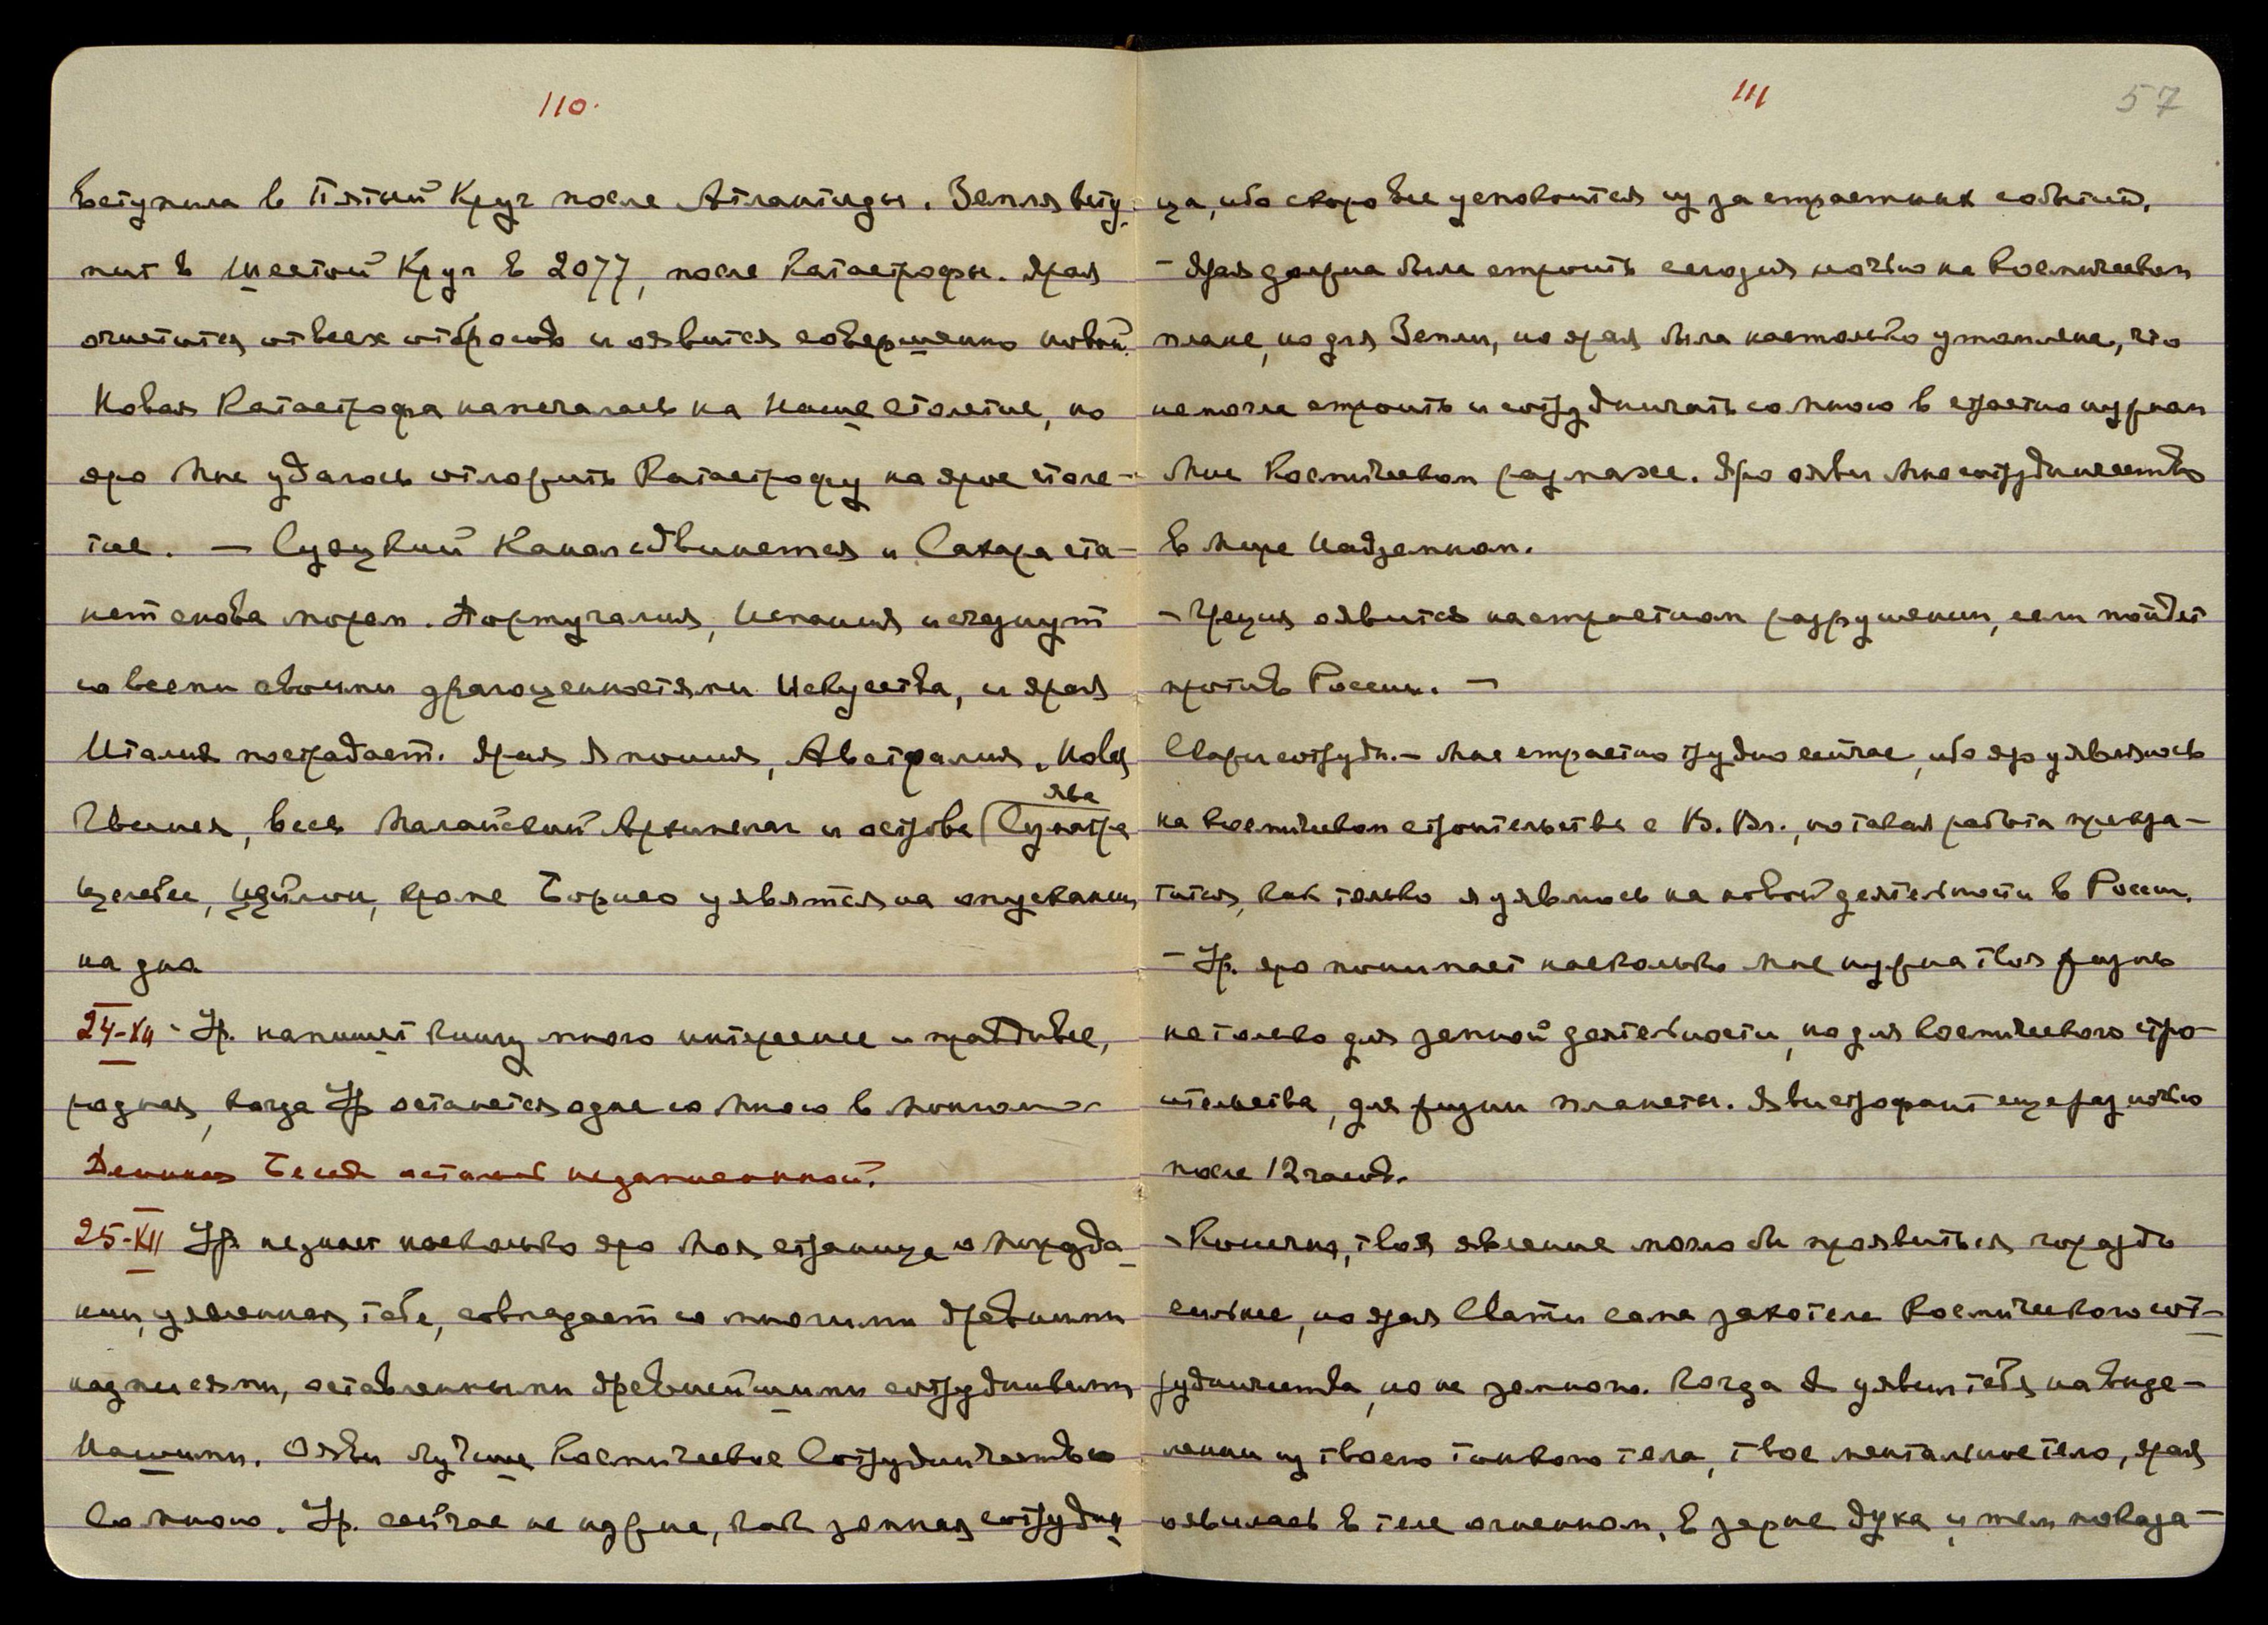 110.
вступила в Пятый Круг после Атлантиды. Земля всту-
пит в Шестой Круг в 2077, после Катастрофы. Ярая
очистится от всех отбросов и явится совершенно новой.
Новая Катастрофа намечалась на Наше столетие, но
яро Мне удалось отложить Катастрофу на ярое столе-
тие. — Суэцкий Канал сдвинется и Сахара ста-
нет снова морем. Португалия, Испания исчезнут
со всеми своими драгоценностями Искусства, и ярая
Италия пострадает. Ярая Япония, Австралия, Новая
Ява
Гвинея, весь Малайский Архипелаг и острова (Суматра
Целебес, Цейлон, кроме Борнео уявятся на опускании
на дно
24-XII - Ур. напишет книгу много интереснее и правдивее,
родная, когда Ур останется одна со Мною в
Дневная Беседа осталась незаписанной.
25-XII Ур. не знает насколько яро Моя страница о Мирозда-
нии, уявленная тебе, совпадает со многими древними
надписями, оставленными древнейшими сотрудниками
Нашими. Ояви лучше Космическое Сотрудничество
Со Мною. Ур. сейчас не нужна, как земная сотрудни-
111
57
ца, ибо скоро все успокоится из за страстных событий.
- Ярая должна была строить сегодня ночью на Космическом
плане, но для Земли, но ярая была настолько утомлена, что
не могла строить и сотрудничать со Мною в страстно нужном
Мне Космическом размахе. Яро ояви Мне сотрудничество
в Мире Надземном.
- Греция оявится на страстном разрушении, если пойдет
против России. —
Свати сотруди. - Мне страстно трудно сейчас, ибо яро уявляюсь
на Космическом строительстве с В. Вл., но такая работа прекра-
тится, как только я уявлюсь на новой деятельности в России.
- Ур. яро понимает насколько Мне нужна твоя жизнь
не только для земной деятельности, но для Космического стро-
ительства, для жизни планеты. Яви строфант еще раз ночью
после 12 часов.
- Конечно, твое явление могло бы проявиться гораздо
сильнее, но ярая Свати сама захотела Космического сот-
рудничества, но не земного. Когда Я уявил тебя на выде-
лении из твоего тонкого тела, твое ментальное тело, ярая
оявилась в теле огненном, в зерне духа и тем показа-